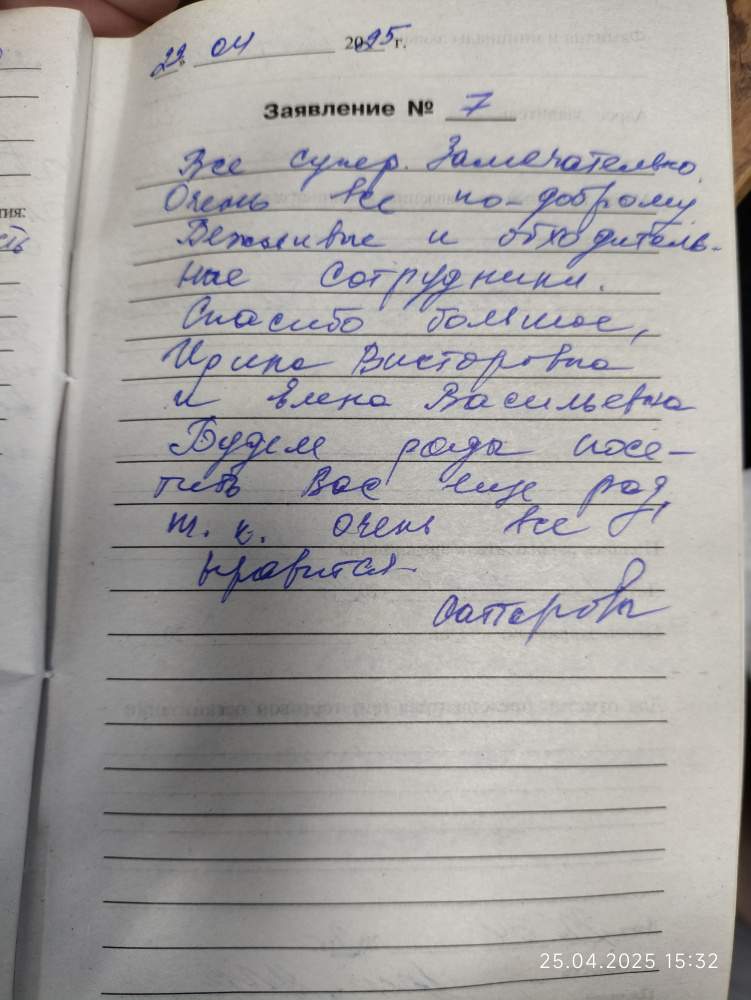 22. 04 2025 г.
Заявление № 7
Все супер. Замечательно.
Очень все по-доброму.
Вежливые и обходитель-
ные сотрудники.
Спасибо большое,
Ирина Викторовна
и Елена Васильевна
Будем рады посе-
тить Вас еще раз,
т. к. очень все
нравится
Саппаровы
тия:
сть
25.04.2025 15:32